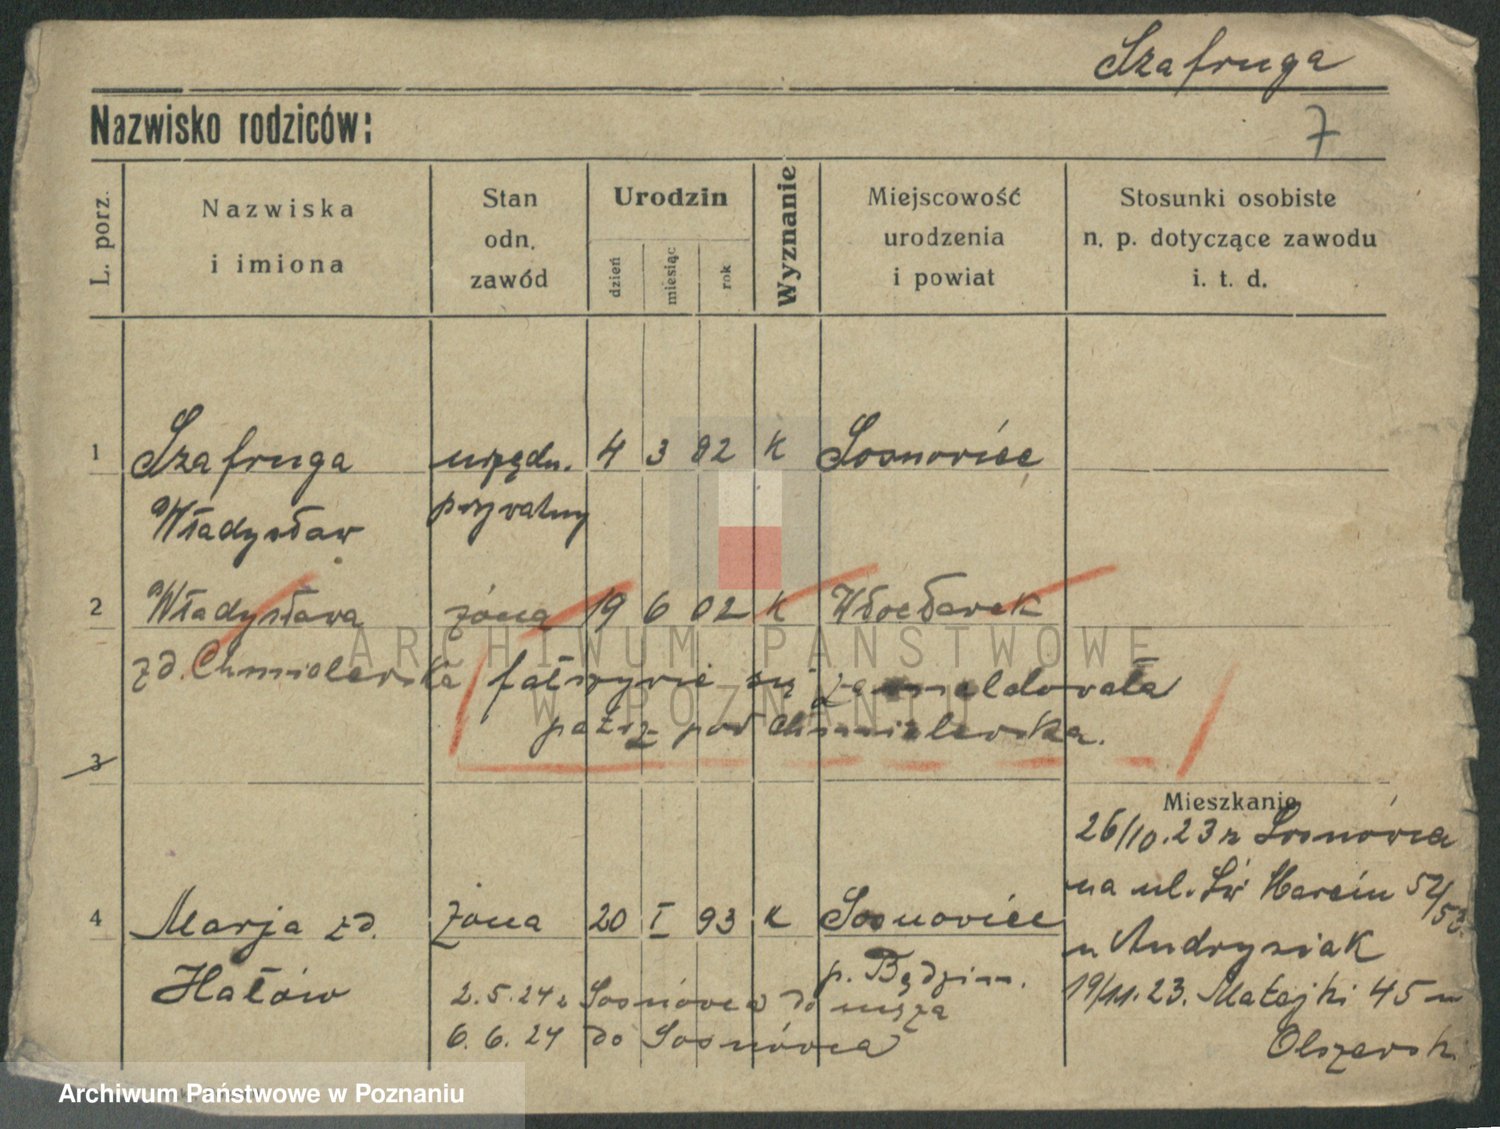 Szafruga
Nazwisko rodziców:
7
L. porz.
Nazwiska
i imiona
Stan
odn.
zawód
Urodzin
dzień
miesiąc
rok
Wyznanie
Miejscowość
urodzenia
i powiat
Stosunki osobiste
n. p. dotyczące zawodu
i. t. d.
1 Szafruga urzędn. 4 3 82 K Sosnowiec
Władysław prywatny
2 Władysława żona 19 6 02 K Włocławek
zd. Chmielewska fałszywie się zameldowała
patrz pod Chmielewska.
3
Mieszkanie
26/10.23 z Sosnowca
na ul. Św Marcin 52/53
4 Marja zd. żona 20 I 93 K Sosnowiec
u Andrysiak
Hałów
p. Będzin.
2.5.24 z Sosnowca do męża
19/11.23. Matejki 45 u
6.6.24 do Sosnowca
Olszewsk.
ARCHIWUM PAŃSTWOWE
W POZNANIU
Archiwum Państwowe w Poznaniu